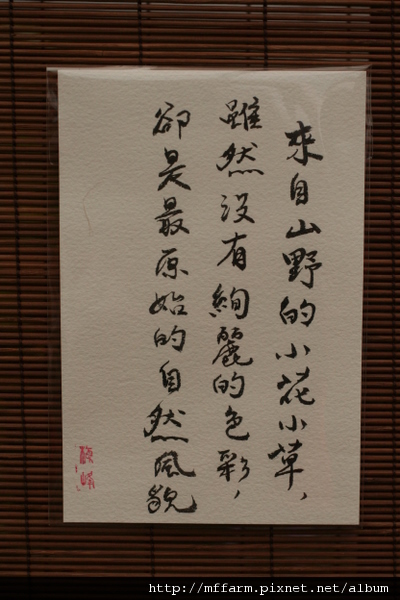 來自山野的小花小草，
雖然沒有絢麗的色彩，
卻是最原始的自然風貌
http://mffarm.pixnet.net/album